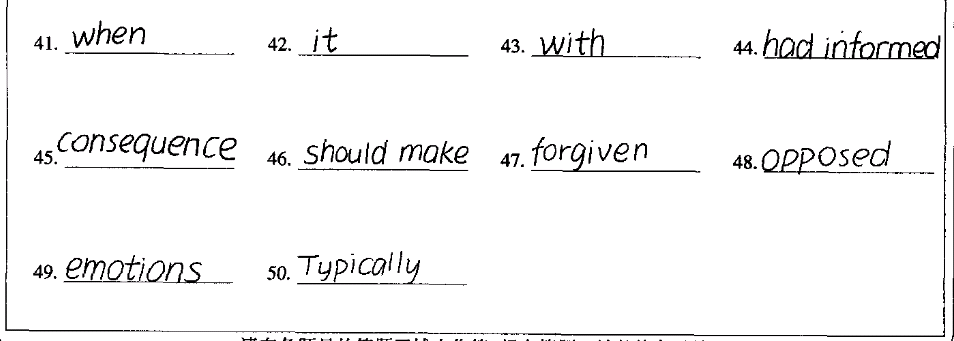 41. when 42. it 43. with 44. had informed
45. consequence 46. should make 47. forgiven 48. opposed
49. emotions 50. Typically